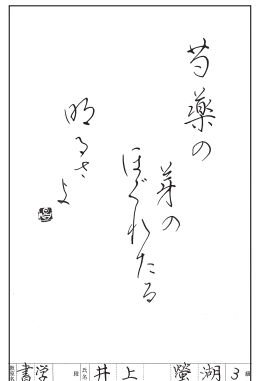 芍薬の
芽の
ほぐれたる
明るさよ
書学 段 氏名 井上 螢湖 3 級